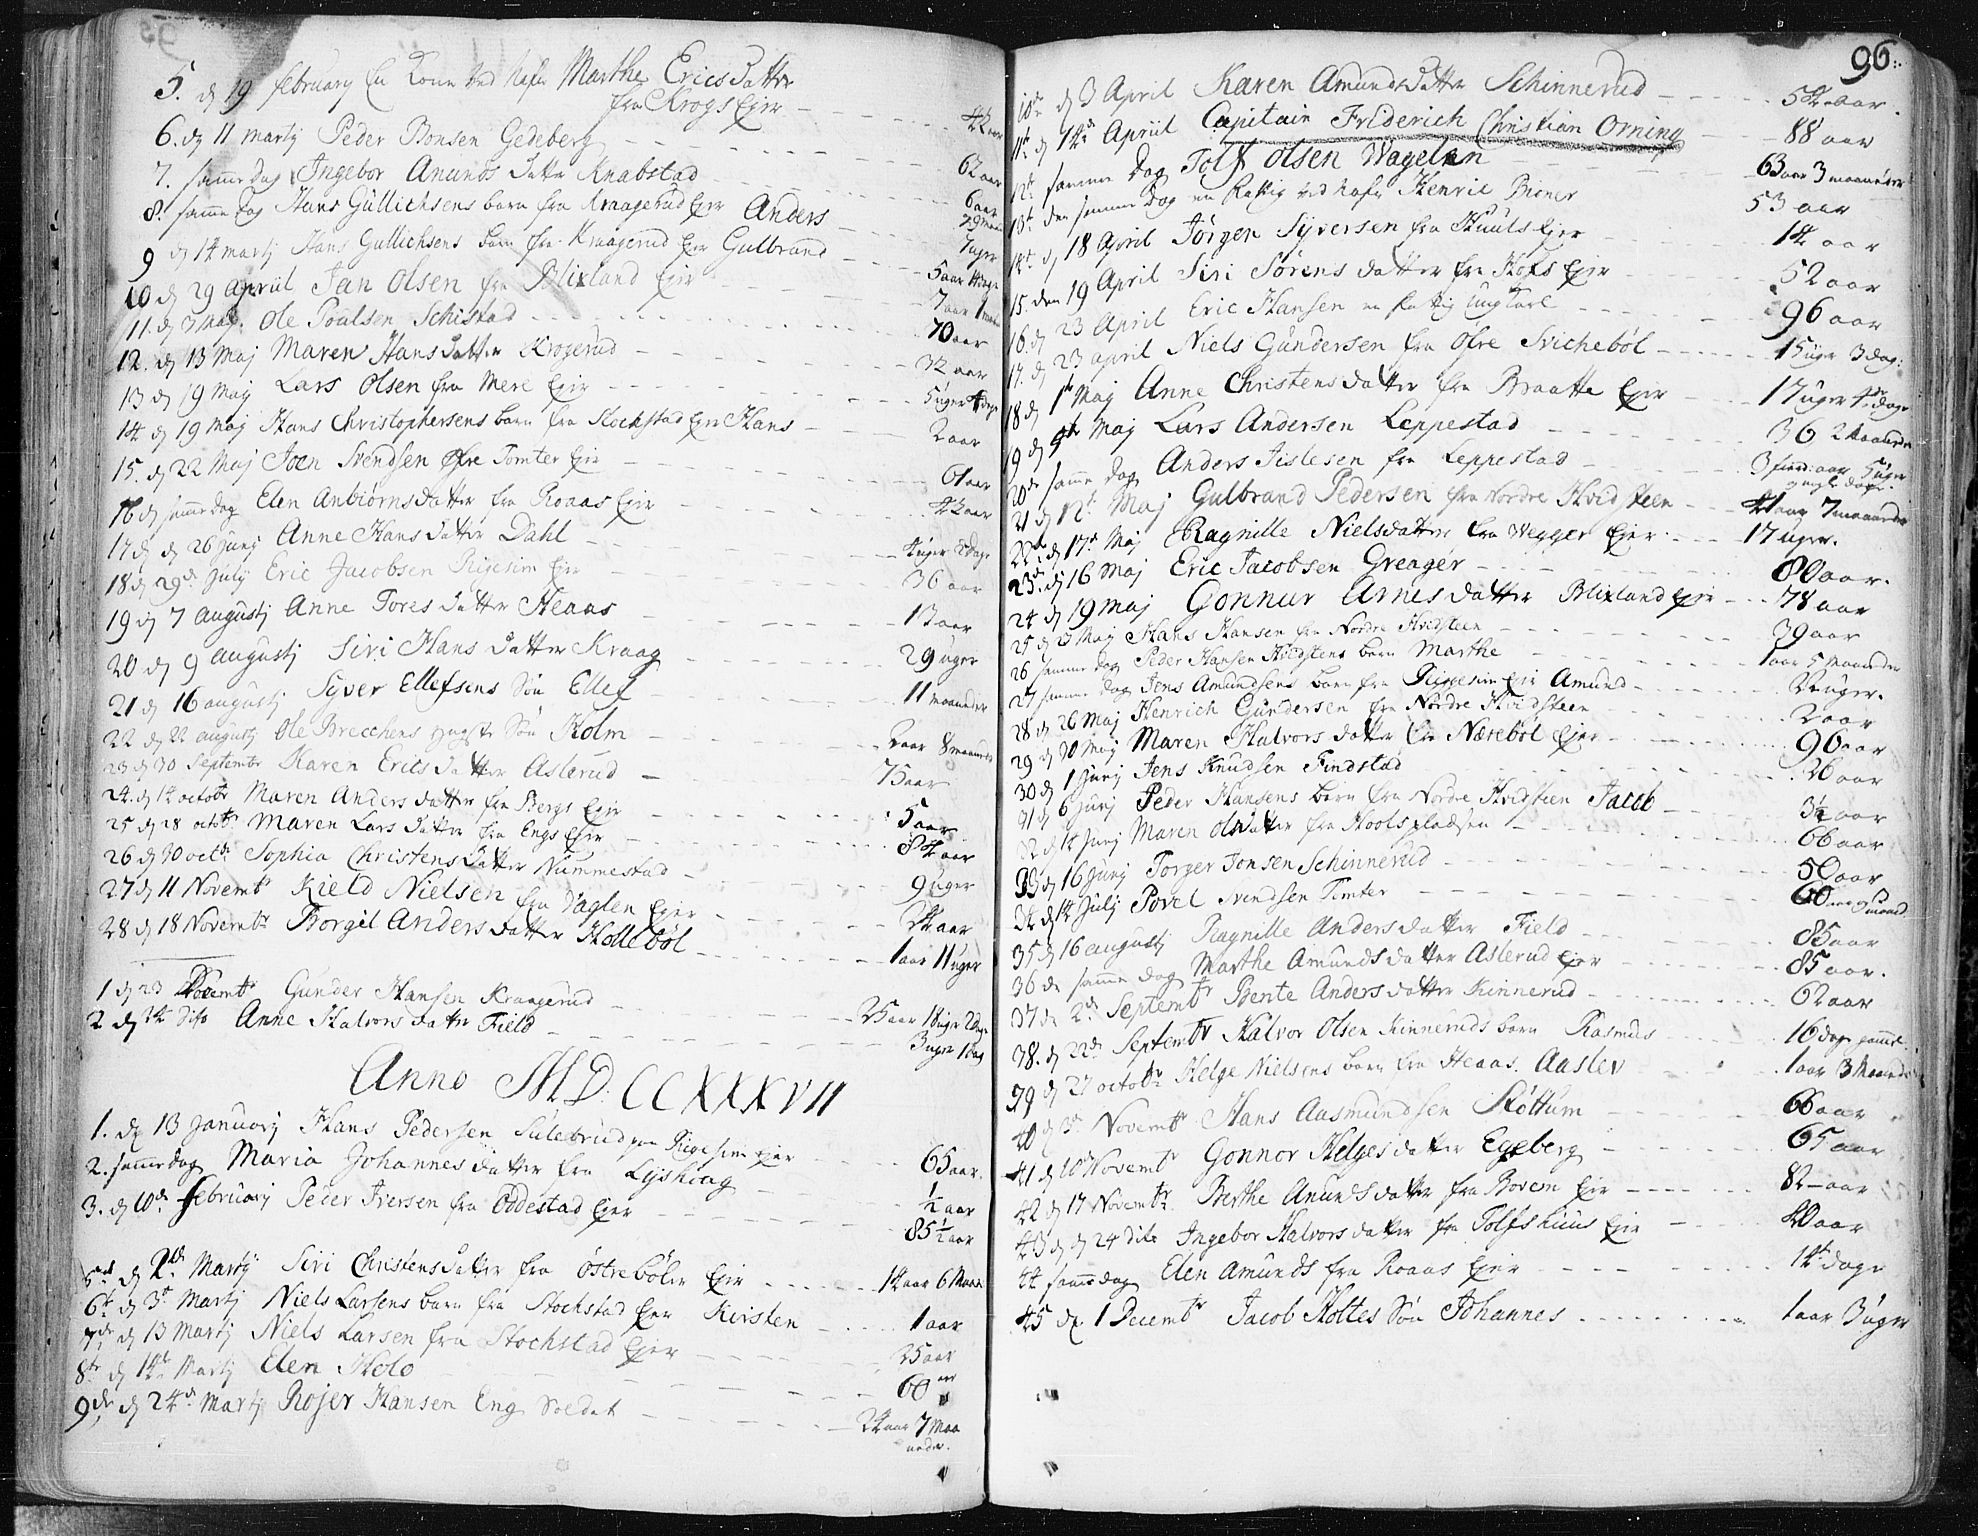 5. dj 19 february En Kone ved Nafn Marthe Ericsdatter
fra Krogs Ejer - 42 aar
6. dj 11 martij Peder Bonsen Gedeberg - 62 aar
7. samme dag Ingebor Amunds datter Knabstad - 6 aar
8. samme dag Hans Gullichsens barn fra Kraagerud Ejer Anders
9 dj 14 martij Hans Gullichsens barn fra Kraagerud Ejer Gulbrand
10 dj 29 april Jan Olsen fra Blixland Ejer
11. dj 3 Maj. Ole Poulsen Schistad - 70 aar
12. dj 13 Maj Maren Hans datter Krogerud - 32 aar
13 dj 19 Maj Lars Olsen fra Mere Ejer - 5 uger 4 dage
14 dj 19 Maj Hans Christophersens barn fra Stochstad Ejer Hans - 2 aar
15. dj 22 Maj Joen Svendsen Øfre Tomter Ejer - 61 aar
16 dj samme dag Elen Anbiørns datter fra Roaas Ejer - 42 aar
17 dj 26 Junij Anne Hans datter Dahl - 4 uger 2 dage
18 dj 29d Julij Eric Jacobsen Rigesim Ejer - 36 aar
19 dj 7 augustj Anne Tores datter Heaas - 13 aar
20 dj 9 augustj Siri Hans datter Kraag - 29 uger
21 dj 16 augustj Syver Ellefsens Søn Ellef - 11 maaneder
22 dj 22 augustj Ole Brechens yngste Søn Holm - 2 aar 8 maaneder
23 dj 30 Septembr Karen Erics datter Aslerud - 75 aar
24. dj 14 octobr Maren Anders datter fra Bergs Ejer - 5 aar
25 dj 28 octobr Maren Lars datter fra Engs Ejer - 84 aar
26 dj 30 octbr Sophia Christens datter Nummestad - 9 uger
27 dj 11 Novembr Kield Nielsen fra Daglen Ejer - 24 aar
28 dj 18 Novembr Borgil Anders datter Hollebøl - 1 aar 11 uger
1 dj 23 Gunder Hansen Kraagerud - 25 aar 18 uger 2 dage
2 dj 24 dito Anne Halvors datter Field - 3 uger 1 dag
Anno MD:CCXXXVII
1. dj 13 January Hans Pedersen Sulebrud paa Rigesim Ejer - 65 aar.
2. samme dag Maria Johannes datter fra Lyshoug - 1/2 aar
3. dj 10de february Peder Iversen fra Oddestad Ejer - 85 1/2 aar
5te dj 2de Martij Siri Christensdatter fra Østrebøler Ejer - 14 aar 6 Maan:
6te dj 3d Martij Niels Larsens barn fra Stochstad Ejer Kirsten - 1 aar
7de dj 13 Martij Niels Larsen fra Stochstad Ejer - 35 aar
8te dj 14de Martij Elen Holo - 60 aar
9de dj 24de Martij Rojer Hansen Eng Soldat - 24 aar 7 Maa
neder.
96.
10de dj 3 April Karen Amunds datter Schinnerud - 54 aar
11te dj 14de Apriil Capitain Friderich Christian Orning - 88 aar
12te samme dag Tolf Olsen Wagelen - 63 aar 3 maaneder
13de den samme dag en fattig ved Nafn Henric Bioner - 53 aar
14de dj 18 April Jørgen Syversen fra Huuls Ejer - 14 aar
15. den 19 April Siri Sørens datter fra Hofs Ejer - 52 aar
16. dj 23 April Eric Hansen en fattig ungkarl - 96 aar
17. dj 23 april Niels Gundersen fra Øfre Svichebøl - 15 uger 3 dag:
18 dj 1ste Maj Anne Christensdatter fra Braatte Ejer - 17 uger 4 dage
19 dj Maj Lars Andersen Leppestad - 36 2 Maaneder
20de samme dag Anders Jislesen fra Leppestad - 3 fierd: aar 5 uger
21 dj 12t Maj Gulbrand Pedersen fra Nordre Hvidsteen - 41 aar 7 maaneder
22de dj 17d Maj Ragnille Nielsdatter fra Wegger Ejer - 17 uger.
23de dj 16 Maj Eric Jacobsen Greager - 80 aar.
24 dj 19 Maj Gonnur Arnes datter Blixland Ejer - 78 aar
25 dj 23 Maj Hans Hansen fra Nordre Hvidsteen - 39 aar
26 samme dag Peder Hansen Hvidsteens barn Marthe - 1 aar 5 Maaneder
27 samme dag Jens Amundsens barn fra Rigesim Ejer Amund - 22 uger.
28 dj 26 Maj Henrich Gundersen fra Nordre Hvidsteen - 2 aar
29 dj 30 Maj Maren Halvors datter fra Narebøl Ejer - 96 aar
30 dj 1 Junij Jens Knudsen Findstad - 26 aar
31 dj 6 Junij Peder Hansens barn fra Nordre Hvidsteen Jacob - 3 1/2 aar
32 dj 14 Junij Maren Olsdatter fra Hools pladsen - 66 aar
33 dj 16 Junij Torger Jonsen Schinnerud - 50 aar
34 dj 14 Julij Povel Svendsen Tomter - 60 aar 9 maaned
35 dj 16 augustj Ragnille Anders datter Field - 85 aar
36 de samme dag Marthe Amunds datter Aslerud Ejer - 85 aar.
37 de 2de Septembr Bente Anders datter Kinnerud - 62 aar
38. dj 22de Septembr Halvor Olsen Kinneruds barn Rasmus - 16 dage gammel
39 dj 27 octobr Helge Nielsens barn fra Heaas. Aaslev - 1 aar 3 Maaneder
40 dj 3d Novembr Hans Aasmundsen Skøttum - 66 aar
41 dj 10 Novembr Gonnor Helges datter Egeberg - 65 aar
42 dj 17 Novembr Berthe Amunds datter fra Bovem Ejer - 82 aar
43 dj 24 dito Ingebor Halvors datter fra Tolfshuus Ejer - 40 aar
44 samme dag Elen Amunds fra Roaas Ejer - 14 dage
45 dj 1 Decembr Jacob Holtes Søn Johannes - 1 aar 3 uger